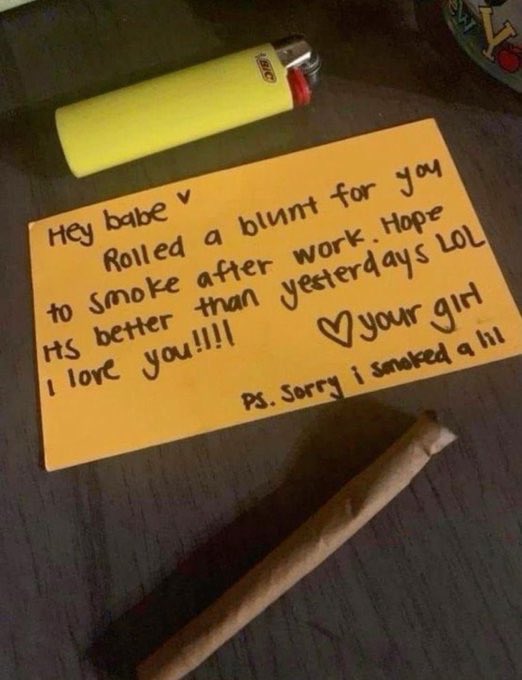 BIC
ew Y
Hey babe ♥
Rolled a blunt for you
to smoke after work. Hope
its better than yesterdays LOL
I love you!!!! ♡ your girl
PS. Sorry i smoked a lil